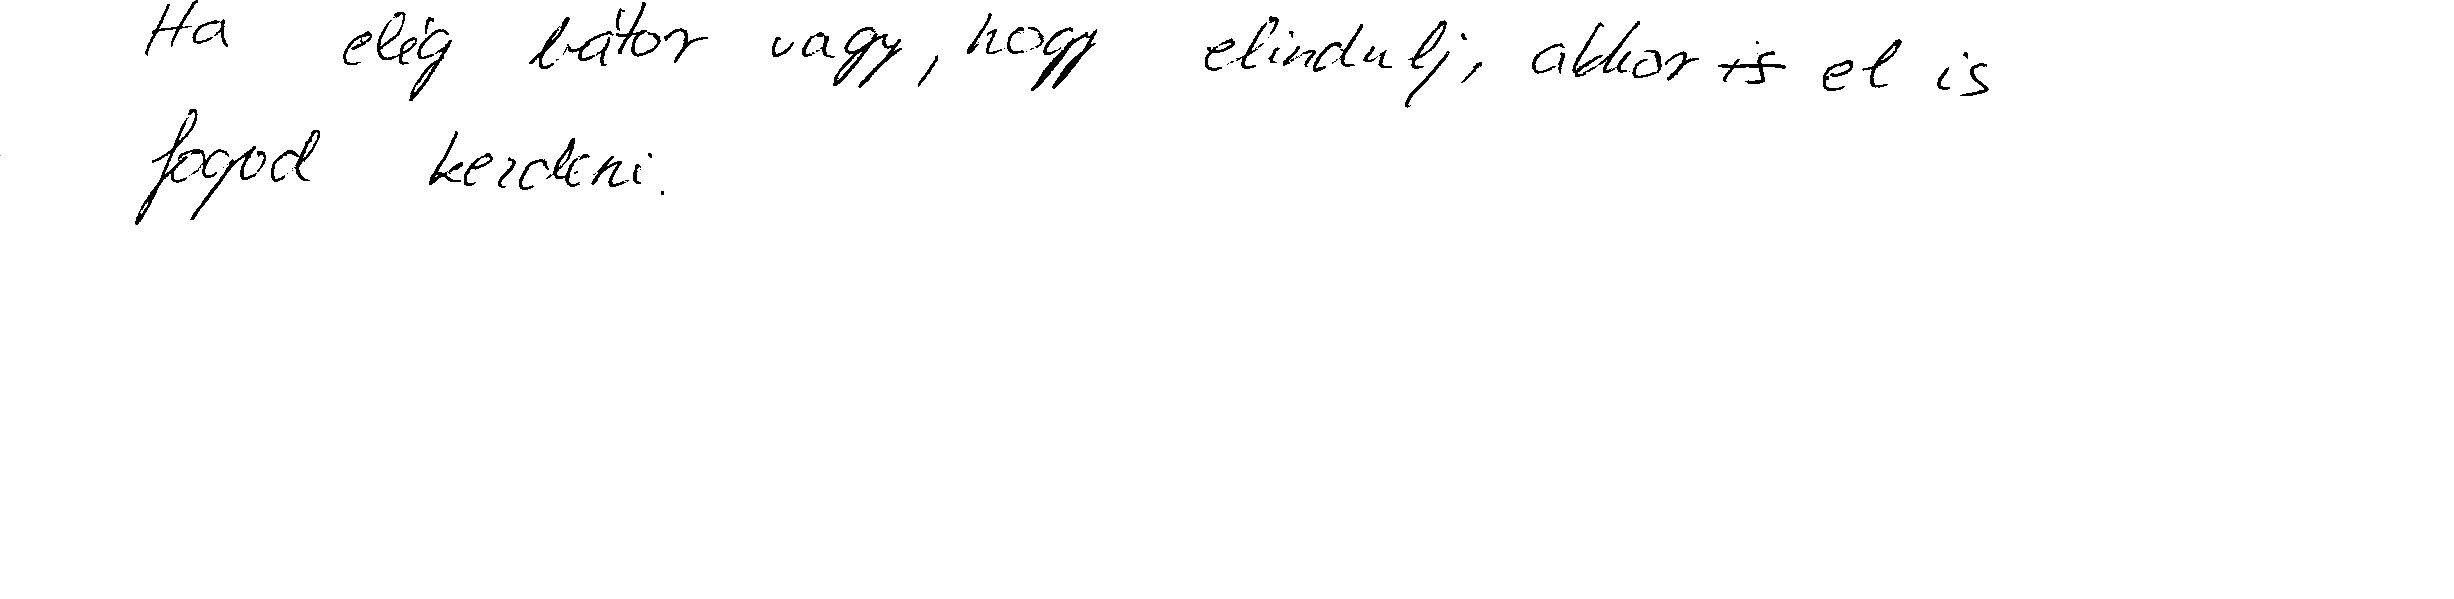 Ha elég bátor vagy, hogy elindulj, akkor is el is
fogod kezdeni.